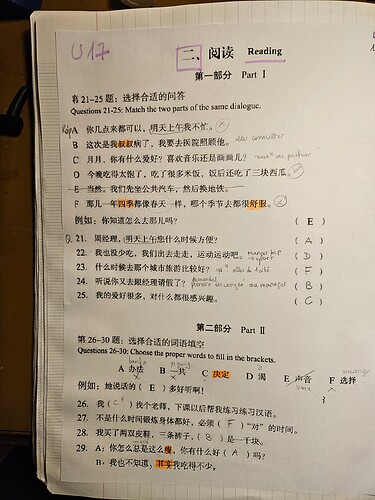 U17
二、阅读 Reading
第一部分 Part I
第21-25题：选择合适的问答
Questions 21-25: Match the two parts of the same dialogue.
A 你几点来都可以，明天上午我不忙。
B 这次是我叔叔病了，我要去医院照顾他。
C 月月，你有什么爱好？喜欢音乐还是画画儿？
D 今晚吃得太饱了，吃了很多米饭，饭后还吃了三块西瓜。
E 当然。我们先坐公共汽车，然后换地铁。
F 那儿一年四季都像春天一样，哪个季节去都很舒服。
例如：你知道怎么去那儿吗？ ( E )
21. 周经理，明天上午您什么时候方便？ ( A )
22. 我也没少吃，我们出去走走，运动运动吧。 ( D )
23. 什么时候去那个城市旅游比较好？ ( F )
24. 听说你又去跟经理请假了？ ( B )
25. 我的爱好很多，对什么都很感兴趣。 ( C )
第二部分 Part II
第26-30题：选择合适的词语填空
Questions 26-30: Choose the proper words to fill in the brackets.
A 办法 B 一共 C 决定 D 渴 E 声音 F 选择
例如：她说话的（ E ）多好听啊！
26. 我（ C ）找个老师，下课以后帮我练习练习汉语。
27. 不是什么时间锻炼身体都好，必须（ F ）“对”的时间。
28. 我买了两双皮鞋，三条裤子，（ B ）是一千块。
29. A：你怎么总是这么瘦，你有什么好（ A ）吗？
B：我也不知道，其实我吃得不少。